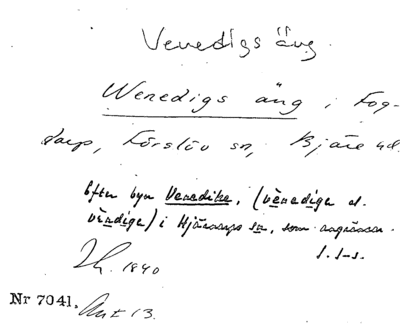 Venedigs äng
Wenedigs äng i Fog-
darp, Förslöv sn, Bjäre hd.
Efter byn Venedike, (vènedige el.
vèndige) i Hjärnarps sn, som angränsar.
1840
Nr 7041. Ant 13.